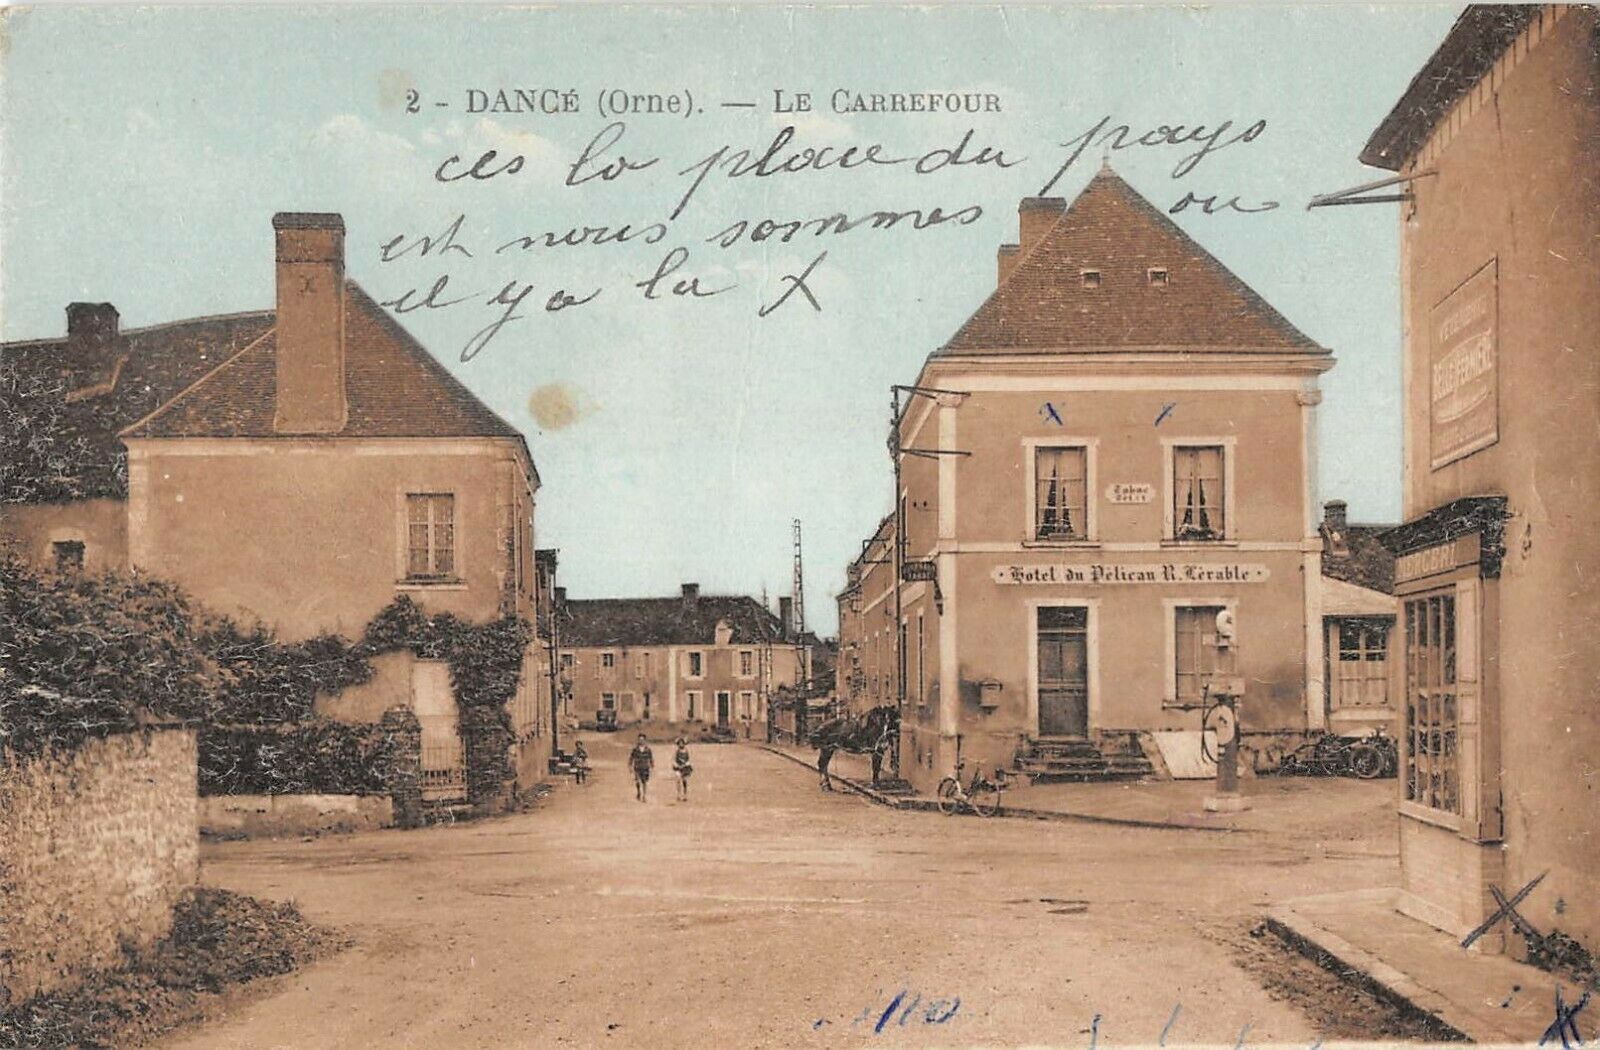 2 - DANCÉ (Orne). — LE CARREFOUR
ces la place du pays
est nous sommes ou
il y a la X
BELLE FERMIÈRE
Tabac
Hotel du Pélican R. Lérable